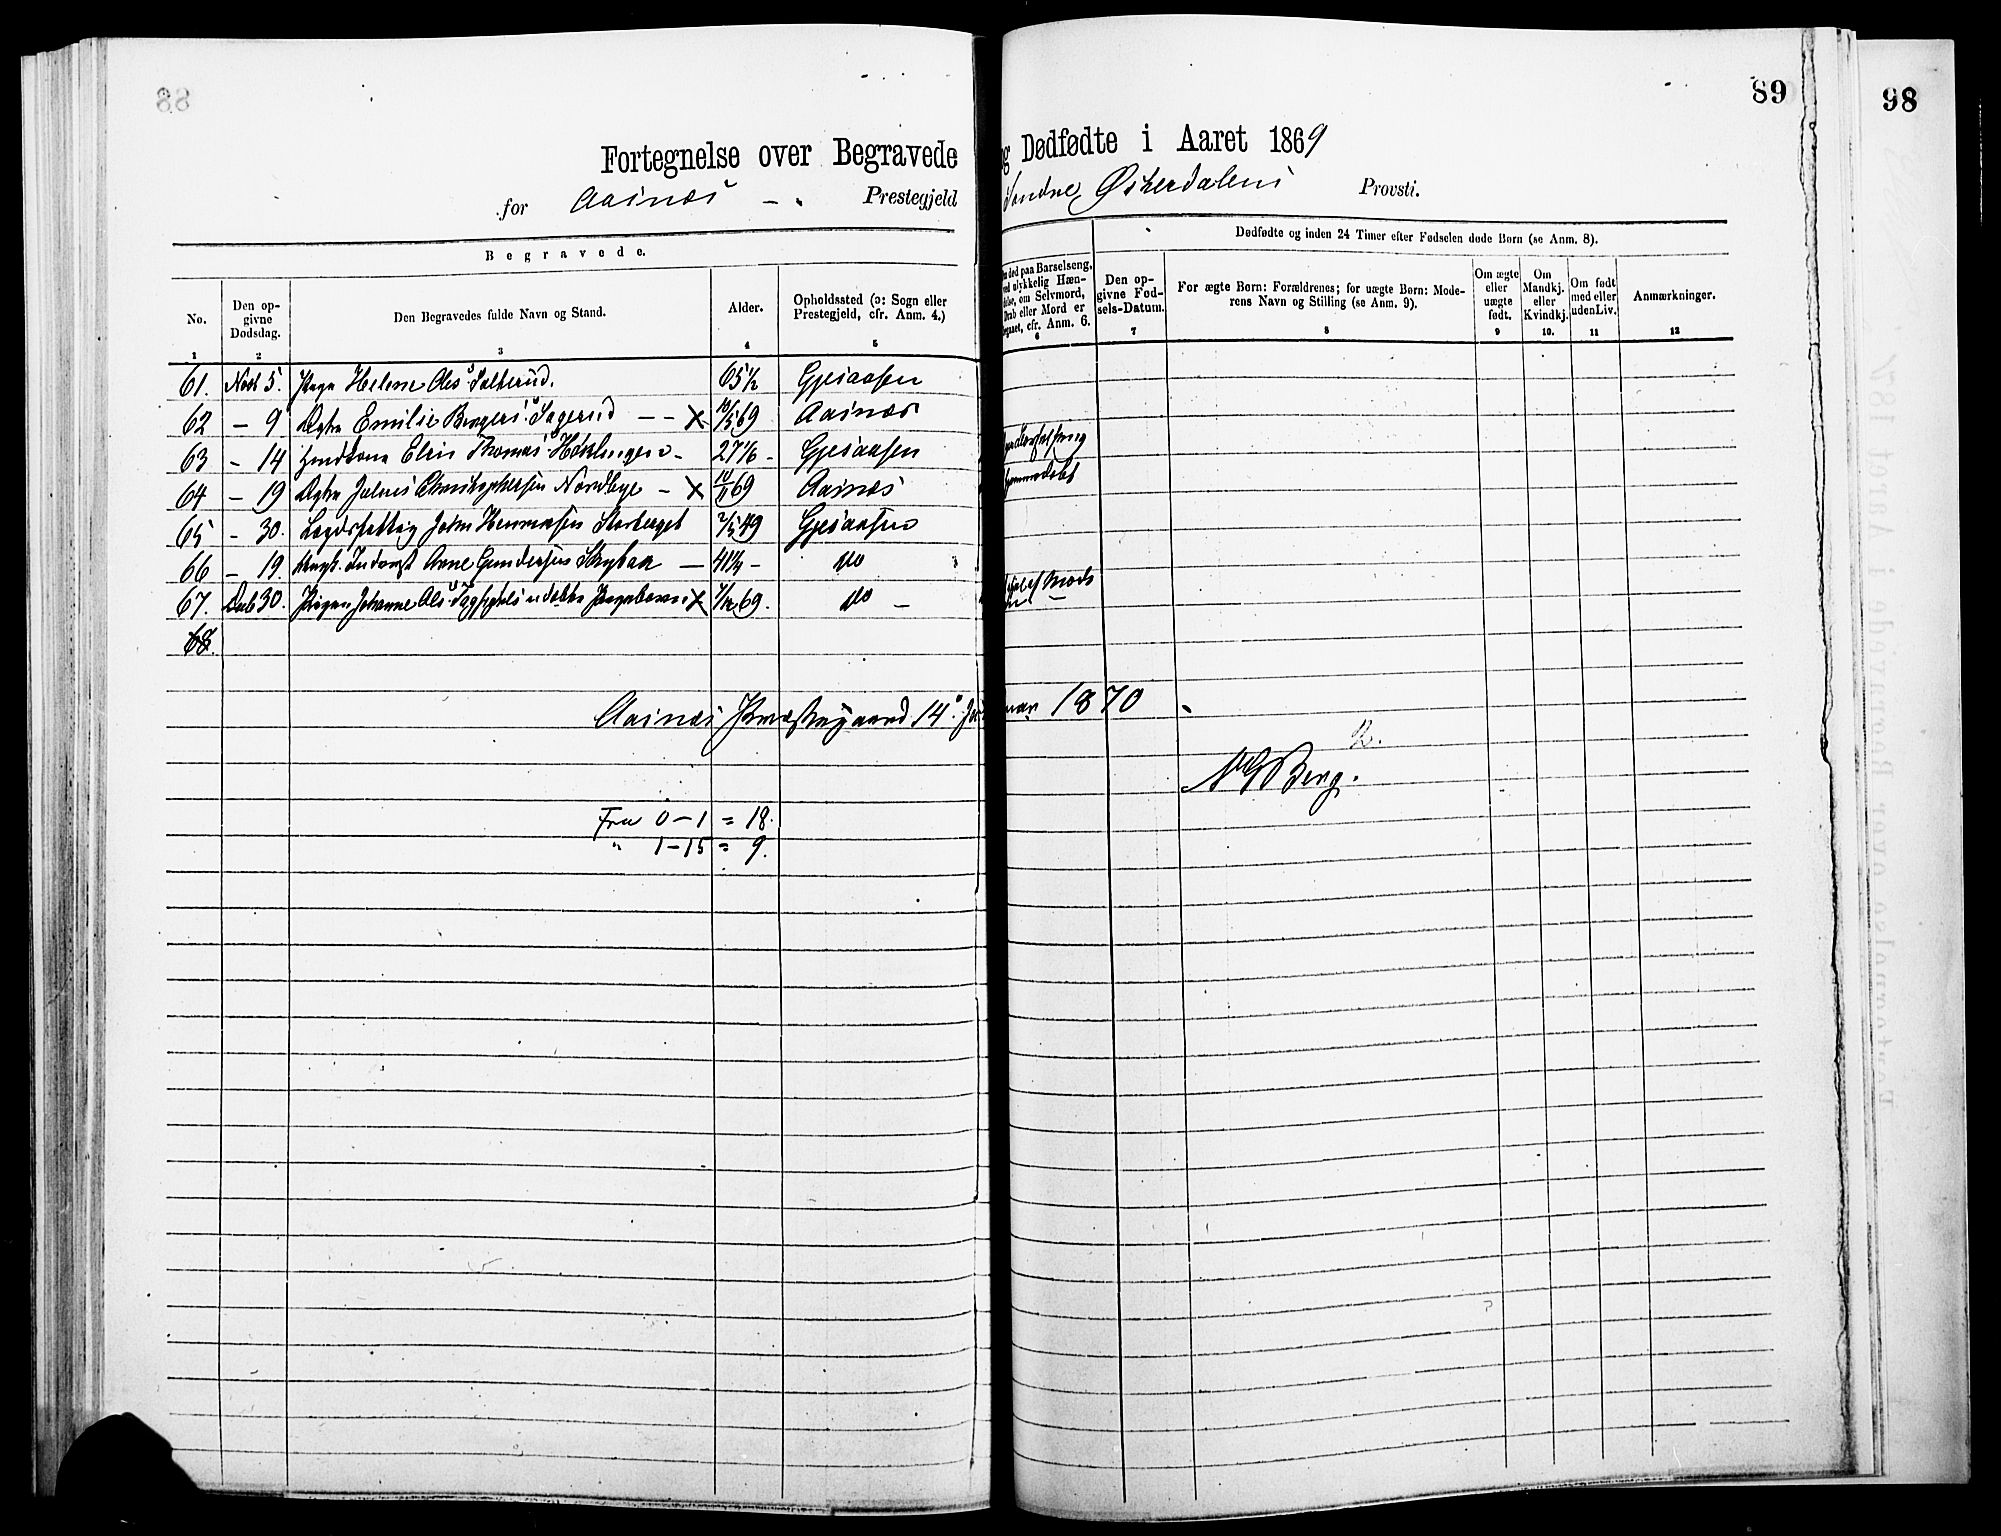 89
98
Fortegnelse over Begravede og Dødfødte i Aaret 1869
for Aasnæs Prestegjeld Søndre Østerdalens Provsti.
Begravede.
Dødfødte og inden 24 Timer efter Fødselen døde Børn (se Anm. 8).
No.
Den opgivne Dødsdag.
Den Begravedes fulde Navn og Stand.
Alder.
Opholdssted (ɔ: Sogn eller Prestegjeld, cfr. Anm. 4.)
død paa Barselseng, ved ulykkelig Hændelse, om Selvmord, Drab eller Mord er begaaet, cfr. Anm. 6.
Den opgivne Fødsels-Datum.
For ægte Børn: Forældrenes; for uægte Børn: Moderens Navn og Stilling (se Anm. 9).
Om ægte eller uægte født.
Om Mandkj. eller Kvindkj.
Om født med eller uden Liv.
Anmærkninger.
1 2 3 4 5 6 7 8 9 10. 11 12
61. Novb 5. Helene Ols Salterud. 65½ Gjesaasen
62 – 9 Emilie Bergers Sagerud – – x 69 Aasnæs
63 – 14 Elin Thomas 27 Gjesaasen
64 – 19 Julius Christophersen Nordbye – x 69 Aasnæs
65 – 30. John Storberget 49 Gjesaasen
66 – 19. Arne Gundersen – do
67. Decb 30. Johanne Ols x 69. do –
68.
Aasnæs Præstegaard 14. Januar 1870
N G Berg.
Fra 0–1 = 18.
" 1–15 = 9.